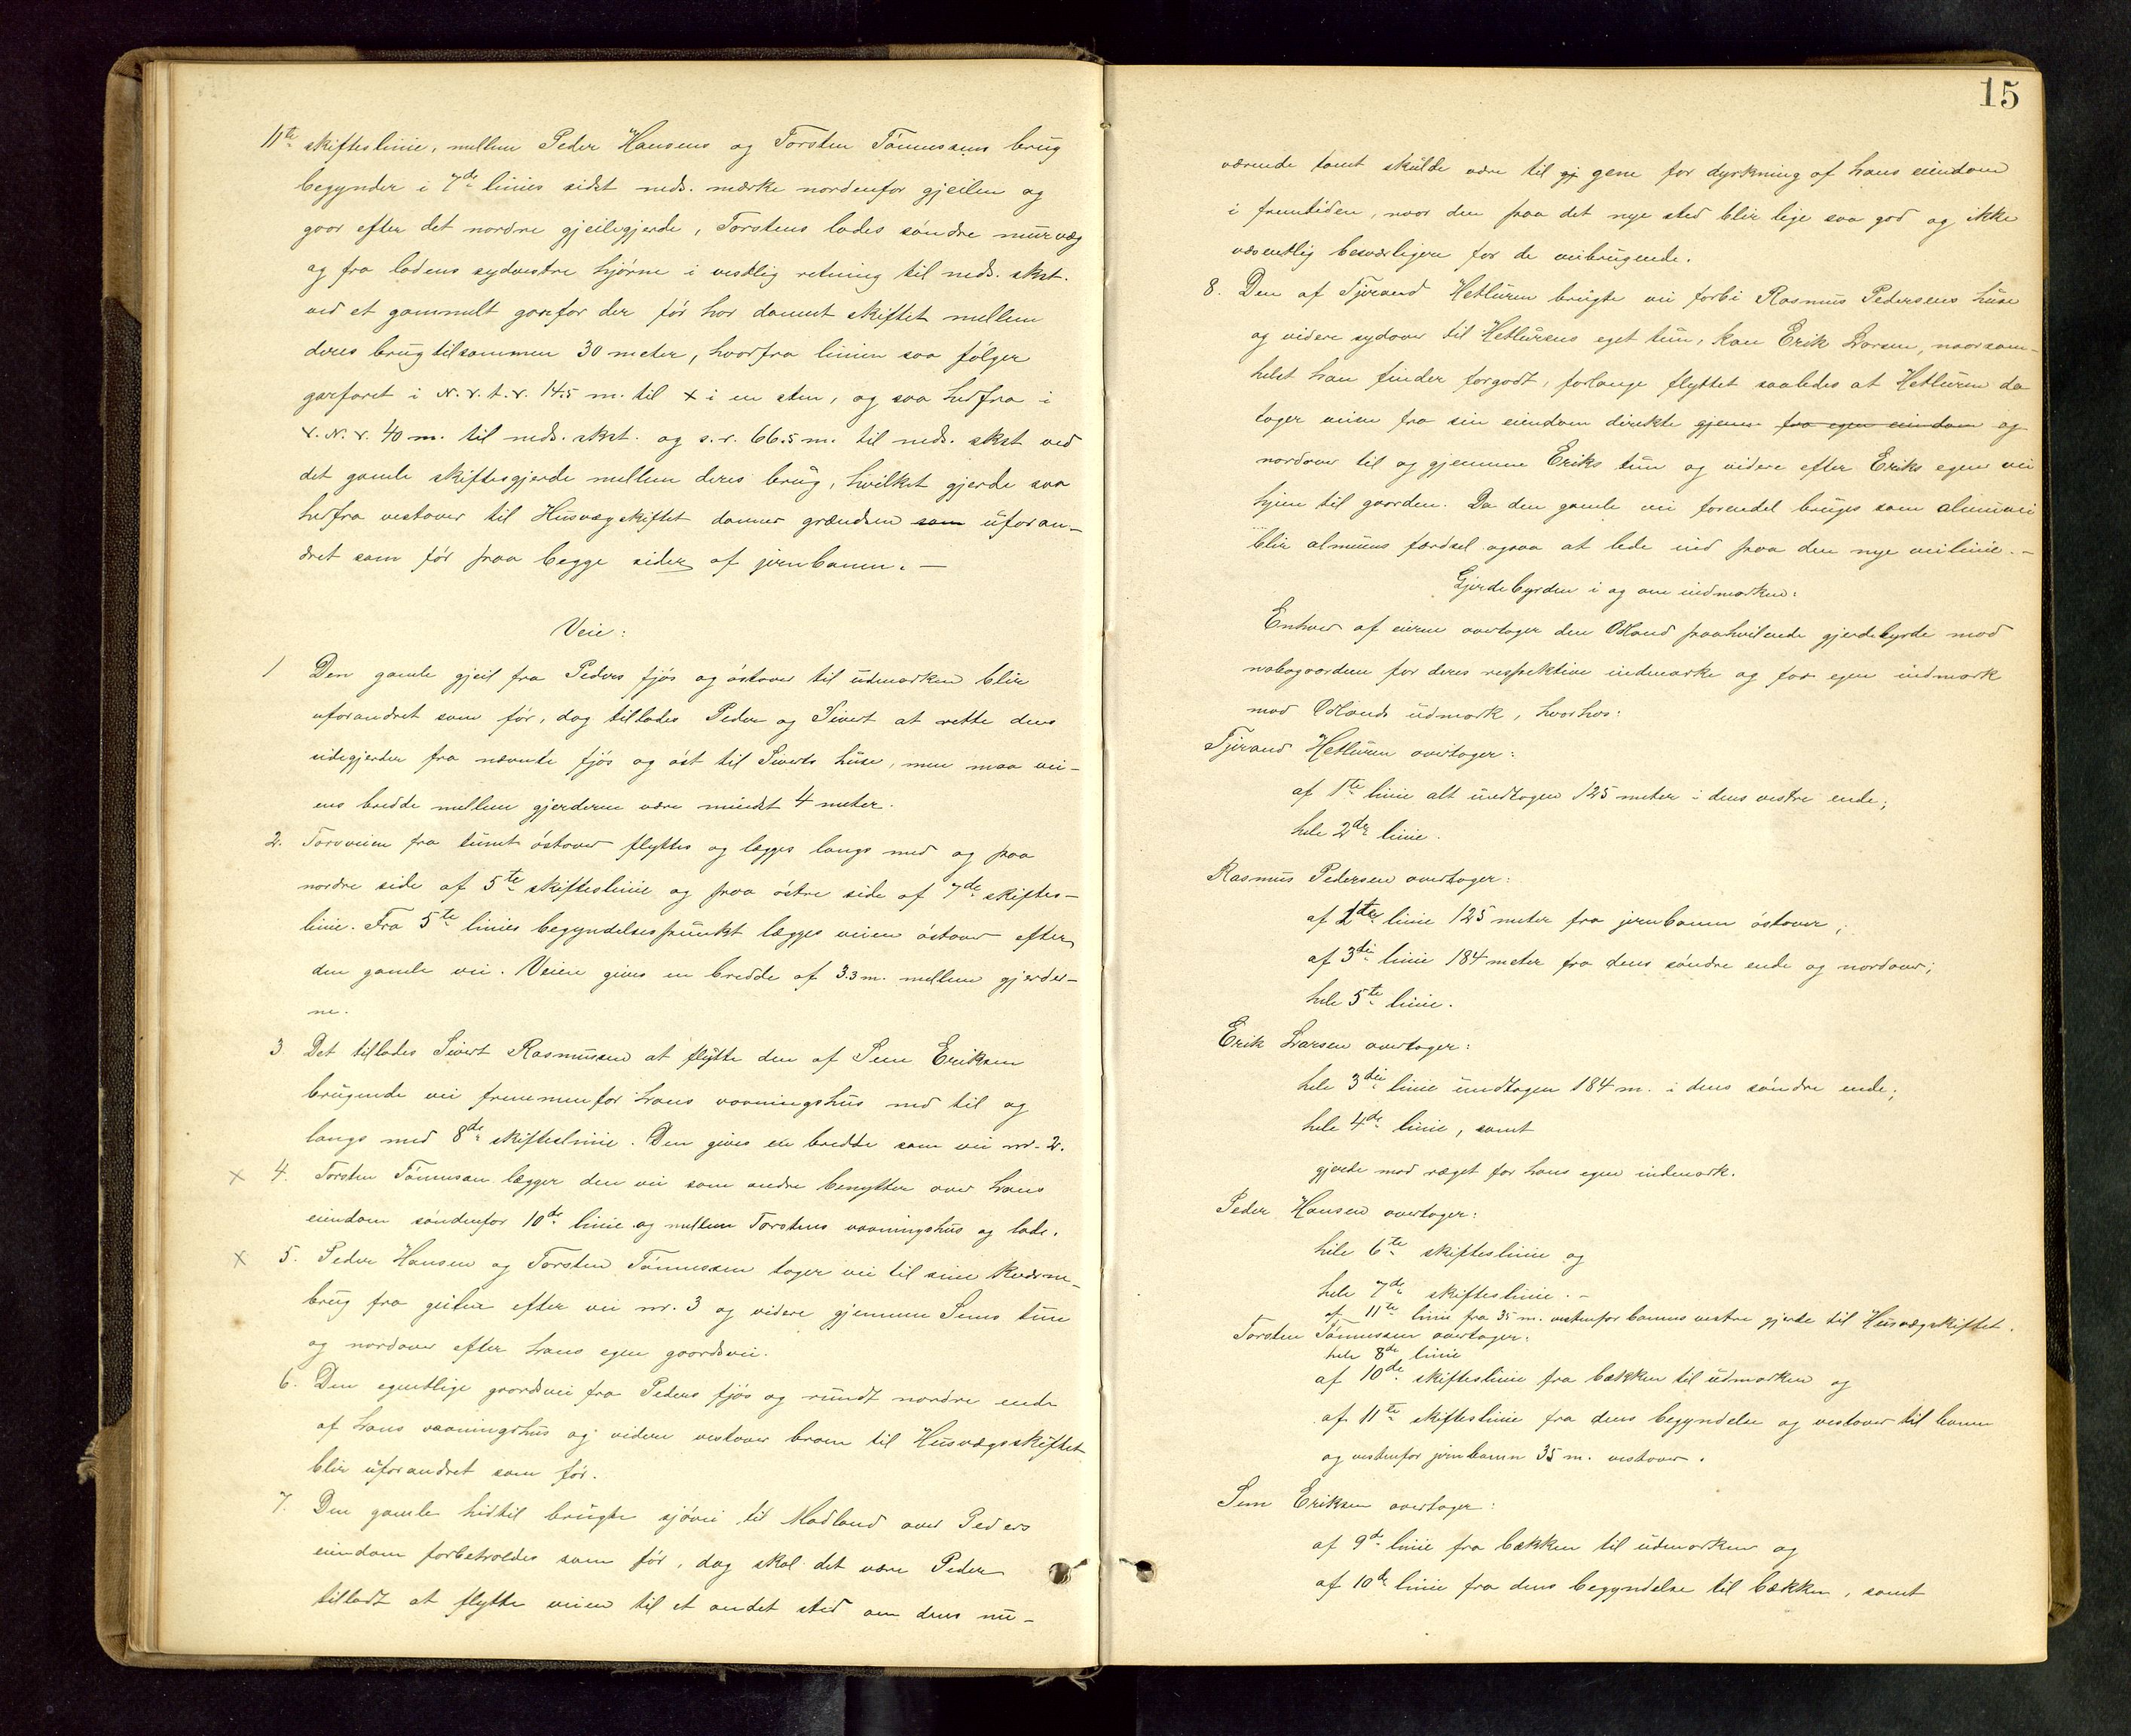 11te skifteslinie, mellem Peder Hansens og Torsten Tönnesens brug
begynder i 7de linies sidst neds. mærke nordenfor gjeilen og
gaar efter det nordre gjeilegjerde, Torstens lades söndre murvæg
og fra ladens sydvestre hjörne i vestlig retning til neds. skst.
ved et gammelt garfor der för har dannet skiftet mellem
deres brug tilsammen 30 meter, hvorfra linien saa fölger
garfaret i N.V.t.V. 14.5 m. til x i en sten, og saa herfra i
V.N.V. 40 m. til neds. skst. og s.v. 66.5 m. til neds. skst ved
det gamle skiftesgjerde mellem deres brug, hvilket gjerde saa
herfra vestover til Husvegskiftet danner grændsen som uforan-
dret som för paa begge sider af jernbanen. —
Veie:
1 Den gamle gjeil fra Peders fjös og östover til udmarken blir
uforandret som för, dog tillades Peder og Sivert at rette dens
utegjerder fra nævnte fjös og öst til Siverts huse, men maa vei-
ens bredde mellem gjerderne være mindst 4 meter.
2. Torvveien fra tunet östover flyttes og lægges langs med og paa
nordre side af 5te skifteslinie og paa östre side af 7de skiftes-
linie. Fra 5te linies begyndelsespunkt lægges veien östover efter
den gamle vei. Veien gives en bredde af 3.3 m. mellem gjerder-
ne.
3 Det tillades Sivert Rasmussen at flytte den af Sem Eriksen
brugende vei fremmenfor hans vaaningshus ned til og
langs med 8de skifteslinie. Den gives en bredde som vei nr. 2.
x 4. Torsten Tönnesen lægger den vei som andre benytter over hans
eiendom söndenfor 10de linie og mellem Torstens vaaningshus og lade.
x 5. Peder Hansen og Torsten Tönnessen tager vei til sine kværne-
brug fra geilen efter vei nr. 3 og videre gjennem Sems tun
og nordover efter hans egen gaardsvei.
6. Den egentlige gaardsvei fra Peders fjös og rundt nordre ende
af hans vaaningshus og videre vestover braen til Husvegsskiftet
blir uforandret som för.
7. Den gamle hidtil brugte sjövei til Madland over Peders
eiendom forbeholdes som för, dog skal det være Peder
tilladt at flytte veien til et andet sted om dens nu-
15
værende tomt skulde være til gj gene for dyrkning af hans eiendom
i fremtiden, naar den paa det nye sted blir lige saa god og ikke
væsentlig besværligere for de veibrugende.
8. Den af Tjörand Hetluren brugte vei forbi Rasmus Pedersens huse
og videre sydover til Hetlurens eget tun, kan Erik Larsen, naarsom-
helst han finder forgodt, forlange flyttet saaledes at Hetluren da
tager veien fra sin eiendom direkte gjenn fra egen eiendom og
nordover til og gjennem Eriks tun og videre efter Eriks egen vei
hjem til gaarden. Da den gamle vei forendel bruges som almuvei
blir almuens færdsel ogsaa at lede ind paa den nye veilinie. -
Gjerdebyrden i og om indmarken:
Enhver af eierne overtager den Odland paahvilende gjerdebyrde mod
nabogaardene for deres respektive indmarke og for egen indmark
mod Odlands udmark, hvorhos:
Tjörand Hetluren overtager:
af 1te linie alt undtagen 125 meter i dens vestre ende;
hele 2den linie.
Rasmus Pedersen overtager:
af 1te linie 125 meter fra jernbanen östover;
af 3die linie 184 meter fra dens söndre ende og nordover;
hele 5te linie.
Erik Larsen overtager:
hele 3die linie undtagen 184 m. i dens söndre ende;
hele 4de linie, samt
gjerde mod ræget for hans egen indmark.
Peder Hansen overtager:
hele 6te skifteslinie og
hele 7de skifteslinie. -
af 11te linie fra 35 m. vestenfor banens vestre gjerde til Husvegskiftet.
Torsten Tönnessen overtager:
hele 8de linie
af 10de skifteslinie fra bækken til udmarken og
af 11te skifteslinie fra dens begyndelse og vestover til banen
og vestenfor jernbanen 35 m. vestover.
Sem Eriksen overtager:
af 9de linie fra bækken til udmarken og
af 10de linie fra dens begyndelse til bækken, samt